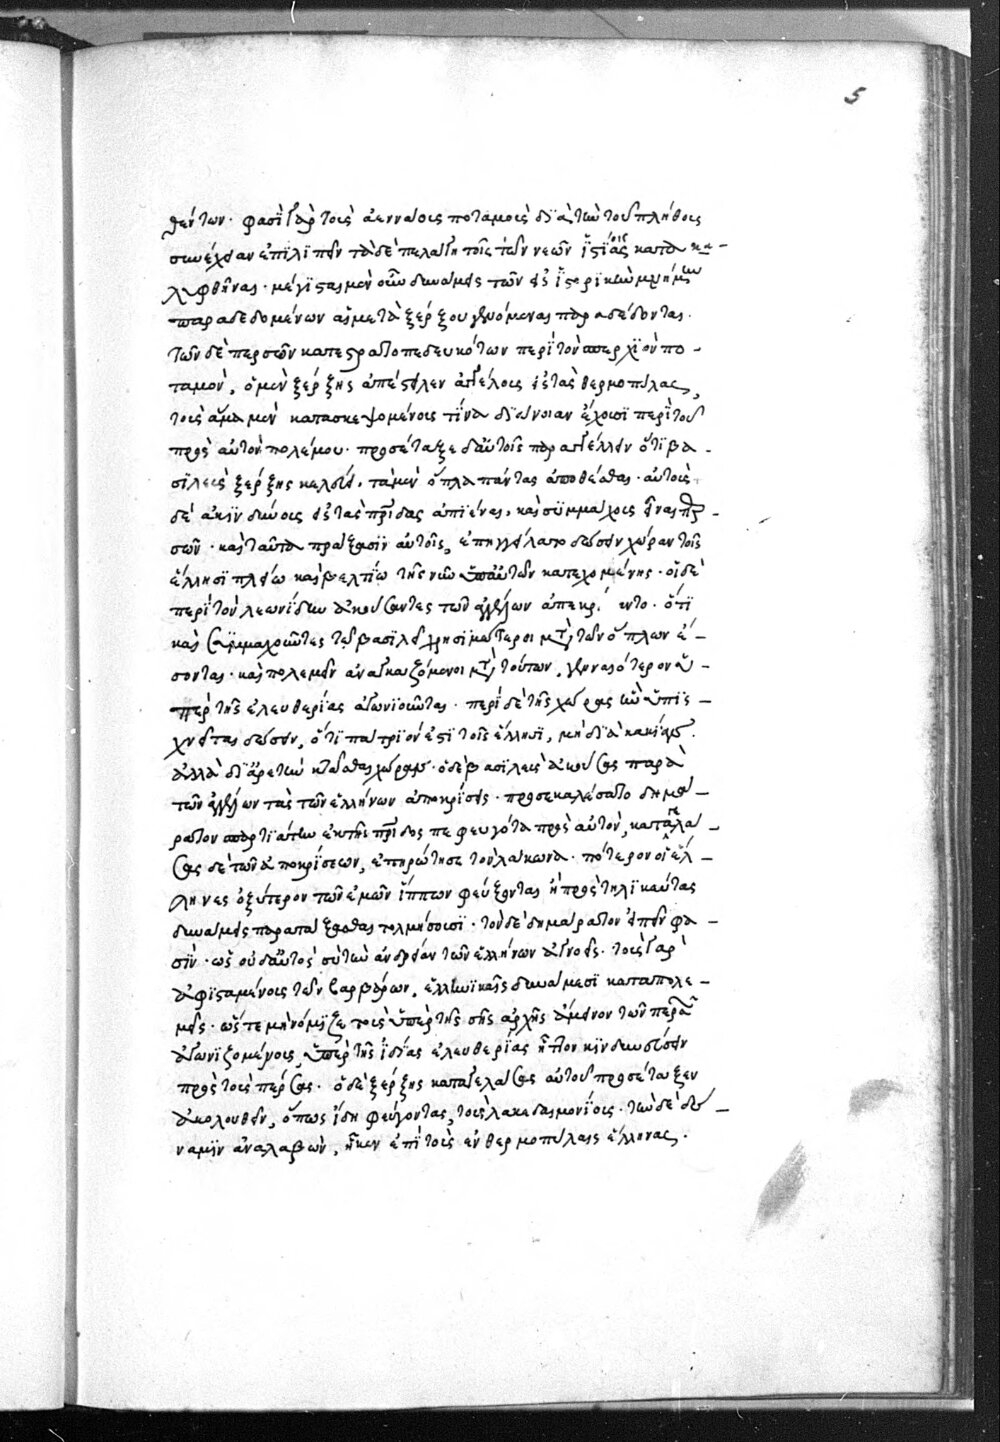 5
θέντων· φασὶ γὰρ τοὺς ἀεννάους ποταμοὺς διὰ τὴν τοῦ πλήθους
συνέχειαν ἐπιλιπεῖν τὰ δὲ πελάγη τοῖς τῶν νεῶν ἱστίοις κατακα-
λυφθῆναι· μέγισται μὲν οὖν δυνάμεις τῶν εἰς ἱστορικὴν μνήμην
παραδεδομένων αἱ μετὰ ξέρξου γενόμεναι παραδέδονται.
τῶν δὲ περσῶν κατεστρατοπεδευκότων περὶ τὸν σπερχιὸν πο-
ταμόν, ὁ μὲν ξέρξης ἀπέστειλεν ἀγγέλους εἰς τὰς θερμοπύλας,
τοὺς ἅμα μὲν κατασκεψομένους τίνα διάνοιαν ἔχουσι περὶ τοῦ
πρὸς αὐτὸν πολέμου· προσέταξε δ' αὐτοῖς παραγγέλλειν ὅτι βα-
σιλεὺς ξέρξης κελεύει, τὰ μὲν ὅπλα πάντας ἀποθέσθαι· αὐτοὺς
δὲ ἀκινδύνους εἰς τὰς πρίδας ἀπιέναι, καὶ συμμάχους εἶναι περ-
σῶν· καὶ ταῦτα πράξασιν αὐτοῖς, ἐπηγγείλατο δώσειν χώραν τοῖς
ἕλλησι πλείω καὶ βελτίω τῆς νῦν ὑπ' αὐτῶν κατεχομένης· οἱ δὲ
περὶ τὸν λεωνίδην ἀκούσαντες τῶν ἀγγέλων ἀπεκρί ντο· ὅτι
καὶ συμμαχοῦντες τῷ βασιλεῖ χρησιμώτεροι μετὰ τῶν ὅπλων ἔ-
σονται· καὶ πολεμεῖν ἀναγκαζόμενοι μετὰ τούτων, γενναιότερον ὑ-
πὲρ τῆς ἐλευθερίας ἀγωνιοῦνται· περὶ δὲ τῆς χώρας ἣν ὑπισ-
χνεῖται δώσειν, ὅτι πάτριόν ἐστι τοῖς ἕλλησι, μὴ διὰ κακίαν
ἀλλὰ δι' ἀρετὴν κτᾶσθαι χώραν· ὁ δὲ βασιλεὺς ἀκούσας παρὰ
τῶν ἀγγέλων τὰς τῶν ἑλλήνων ἀποκρίσεις· προσεκαλέσατο δημά-
ρατον σπαρτιάτην ἐκ τῆς πρίδος πεφευγότα πρὸς αὐτόν, καταγελά-
σας δὲ τῶν ἀποκρίσεων, ἐπηρώτησε τὸν λάκωνα· πότερον οἱ ἕλ-
ληνες ὀξύτερον τῶν ἐμῶν ἵππων φεύξονται ἢ πρὸς τηλικαύτας
δυνάμεις παρατάξασθαι τολμήσουσι· τὸν δὲ δημάρατον εἰπεῖν φα-
σιν· ὡς οὐδ' αὐτὸς σὺ τὴν ἀνδρείαν τῶν ἑλλήνων ἀγνοεῖς· τοὺς γὰρ
ἀφισταμένους τῶν βαρβάρων, ἑλληνικαῖς δυνάμεσι καταπολε-
μεῖς· ὥστε μὴ νόμιζε τοὺς ὑπὲρ τῆς σῆς ἀρχῆς ἄμεινον τῶν περσῶν
ἀγωνιζομένους, ὑπὲρ τῆς ἰδίας ἐλευθερίας ἧττον κινδυνεύσειν
πρὸς τοὺς πέρσας· ὁ δὲ ξέρξης καταγελάσας αὐτοῦ προσέταξεν
ἀκολουθεῖν, ὅπως ἴδη φεύγοντας τοὺς λακεδαιμονίους· τὴν δὲ δύ-
ναμιν ἀναλαβών, ἧκεν ἐπὶ τοὺς ἐν θερμοπύλαις ἕλληνας.